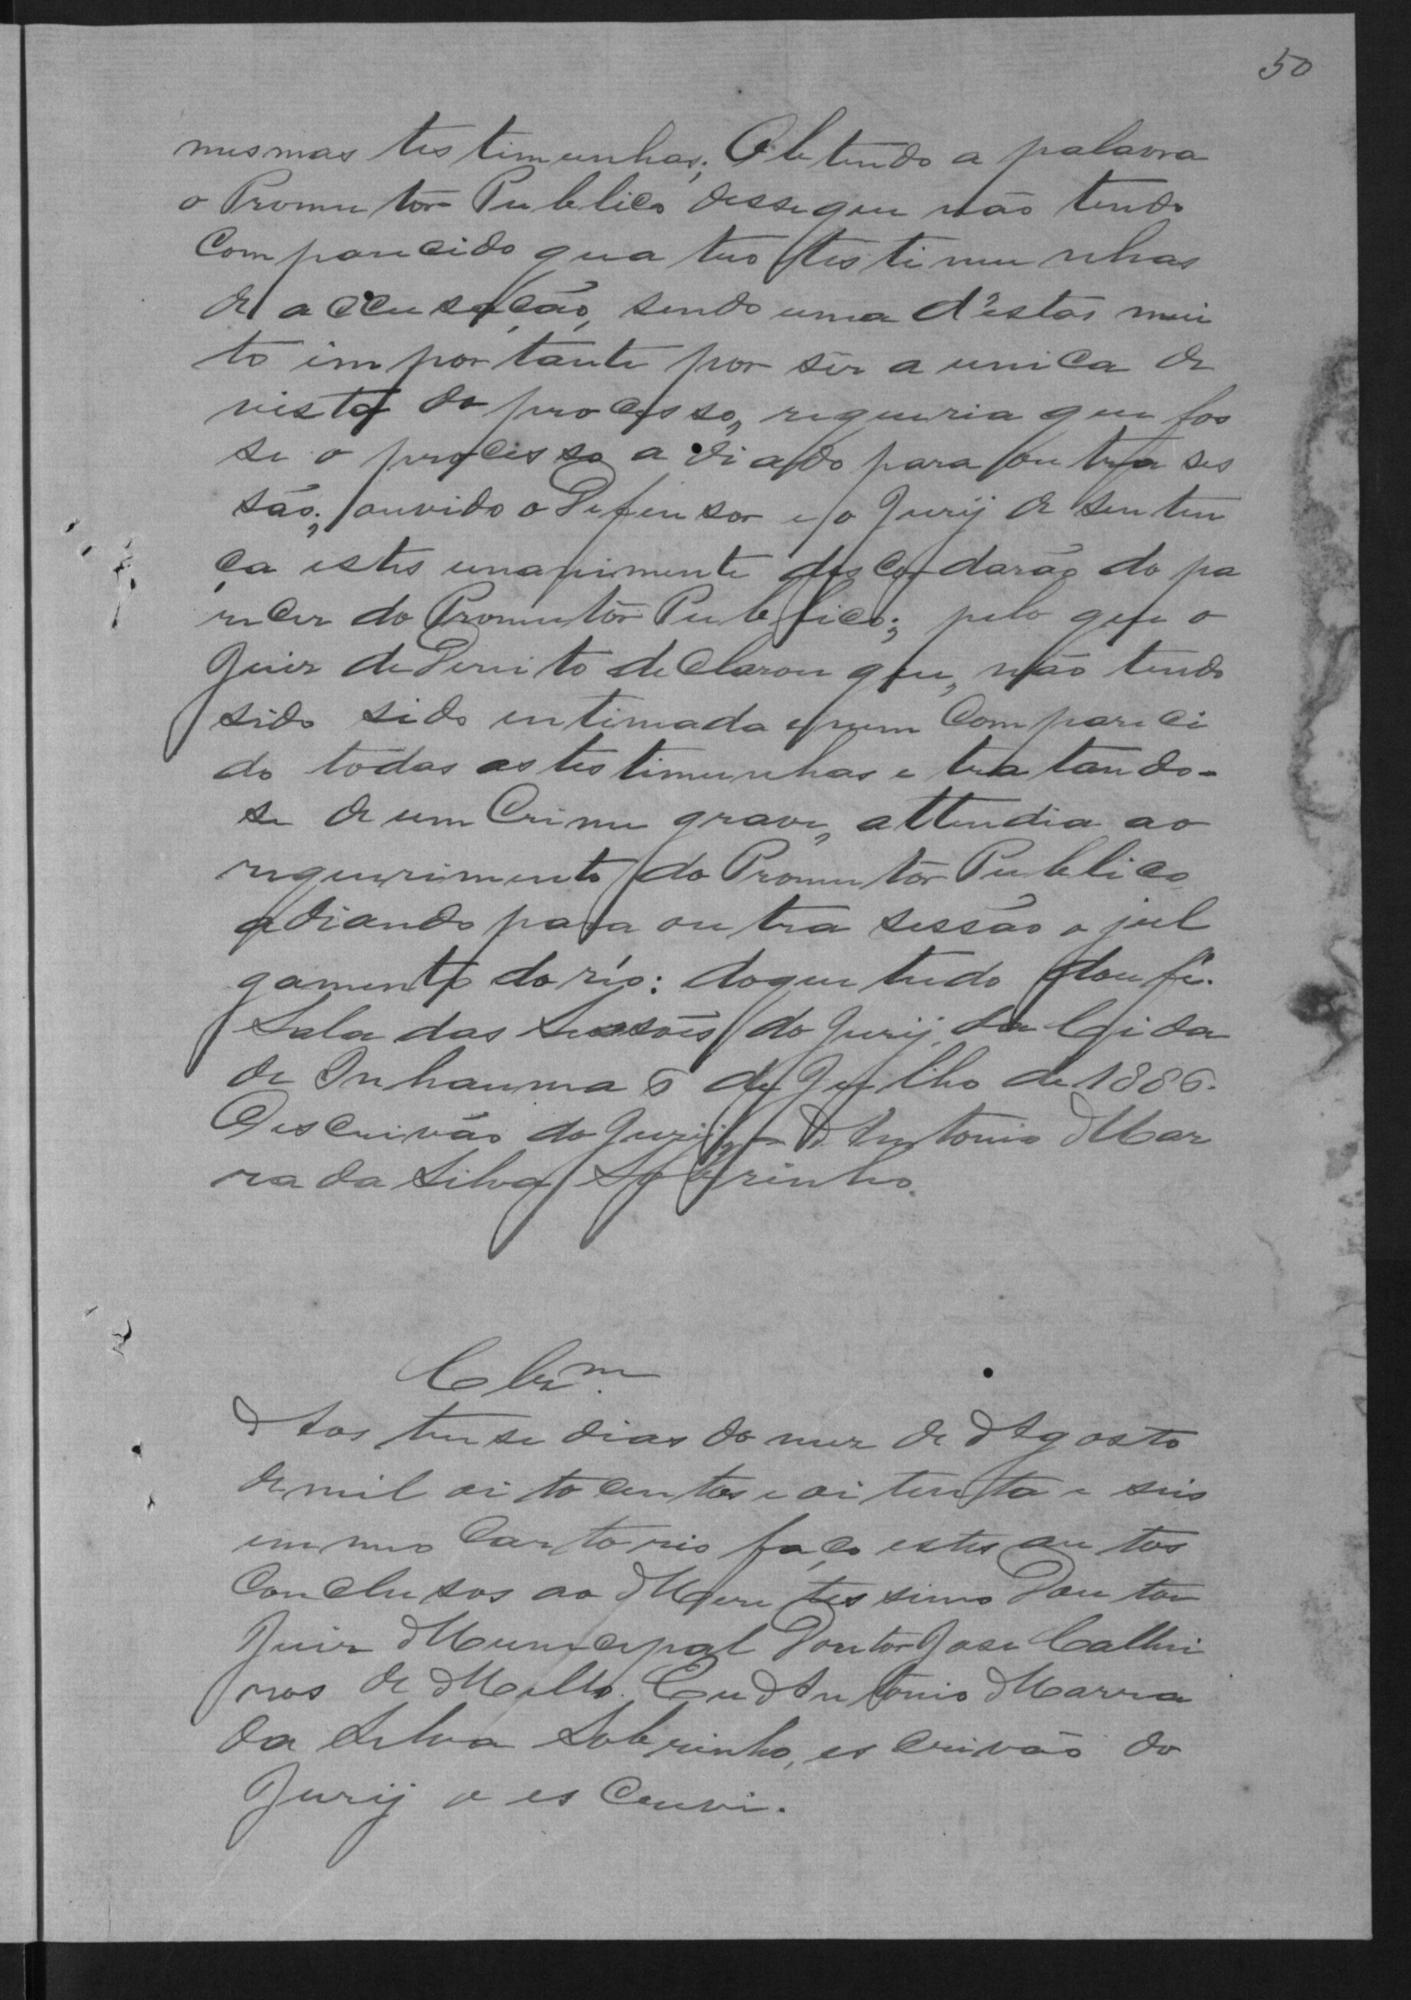 50
mesmas testimunhas; Obtendo a palavra
o Promutor Publico disse que não tendo
Comparecido quatro testimunhas
de accusação, sendo uma d'estas mui
to importante por ser a unica de
vista do processo, requeria que fos
se o processo adiado para outra ses
são; ouvido o Defensor e o Jurij de senten
ça estes unanimente descordarão do pa
recer do Promutor Publico; pelo que o
Juis de Dereito declarou que, não tendo
sido sido entimada e nem Compareci
do todas as testimunhas e tratando-
se de um Crime grave, attendia ao
requerimento do Promutor Publico
adiando para outra sessão o jul
gamento do réo: do que tudo dou fé.
Sala das Sessões do Jurij da Cida
de Inhauma 6 de Julho de 1886.
O escrivão do Jurij, Antonio Mar
ra da Silva Sobrinho.
Clzm
Aos trese dias do mez de Agosto
de mil oitocentos e oitenta e seis
em meo Cartorio faço estes autos
Conclusos ao Meretessimo Doutor
Juiz Municepal Doutor Jose Calhei
ros de Mello. Eu Antonio Marra
da Silva Sobrinho, escrivão do
Jurij o escrevi.